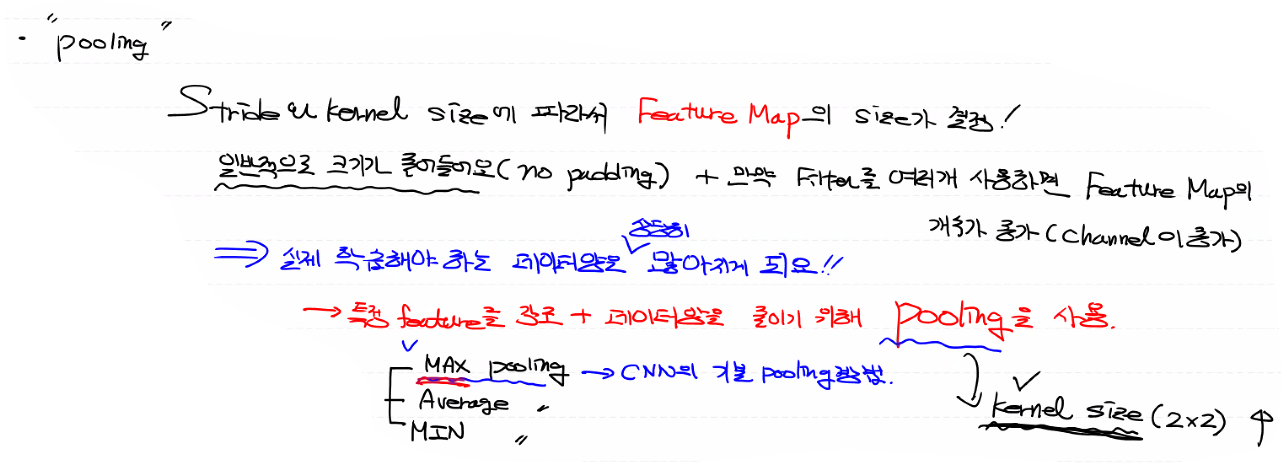 · "pooling"
Stride와 kernel size에 따라서 Feature Map의 size가 결정!
일반적으로 크기가 줄어들어요(no padding) + 만약 Filter를 여러개 사용하면 Feature Map의
개수가 증가(channel이 증가)
굉장히
⇒ 실제 학습해야 하는 데이터양은 ✓ 많아지게 되요!!
→ 특정 feature를 강조 + 데이터양을 줄이기 위해 pooling을 사용.
MAX pooling → CNN의 기본 pooling방법.
Average 〃
kernel size (2×2) ↑
MIN 〃